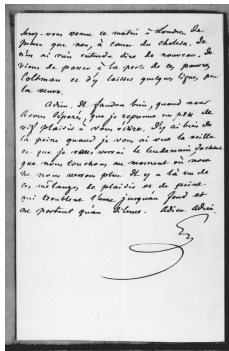 Serez-vous venue ce matin à Londres. Je
pense que non, à cause du choléra. Je
n'en ai rien entendu dire de nouveau. Je
viens de passer à la porte de ces pauvres
Coltman et d'y laisser quelques lignes, pour
la veuve.
Adieu. Il faudra bien, quand nous
serons séparés, que je reprenne un peu de
vif plaisir à vous écrire. J'y ai bien de
la peine quand je vous ai vue la veille
et que je vous verrai le lendemain sachant
que nous touchons au moment où nous
ne nous verrons plus. Il y a là un de
ces mélanges de plaisir et de peine
qui troublent l'âme jusqu'au fond et
ne portent qu'au silence. Adieu. Adieu.